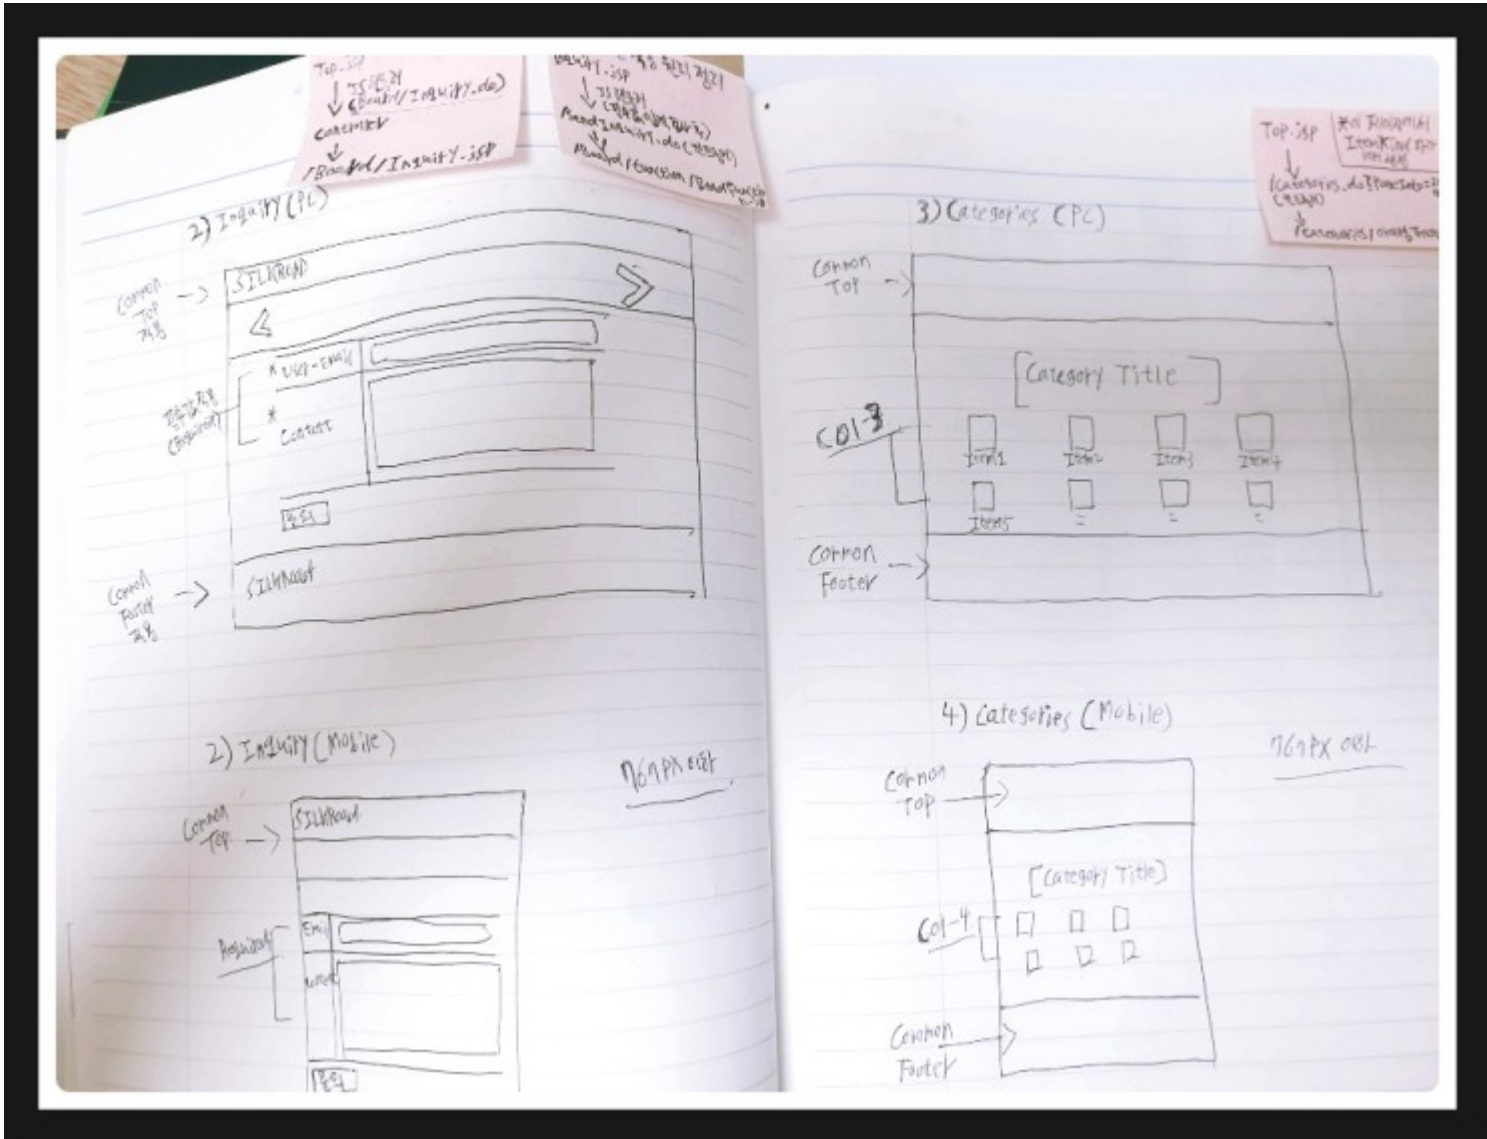 Top.jsp
(Board/Inquiry.do)
Controller
/Board/Inquiry.jsp
Inquiry.jsp
정리
2) Inquiry (PC)
Common
Top
적용
SILKROAD
* User-Email
(Required)
*
Content
문의
Common
Footer
적용
SILKRoad
2) Inquiry (Mobile)
767PX 이하
Common
Top
SILKRoad
Required
Email
Content
문의
Top.jsp
3) Categories (PC)
Common
Top
[Category Title]
Col-3
Item1
Item2
Item3
Item4
Item5
Common
Footer
4) Categories (Mobile)
767PX 이하
Common
Top
[Category Title]
Col-4
Common
Footer